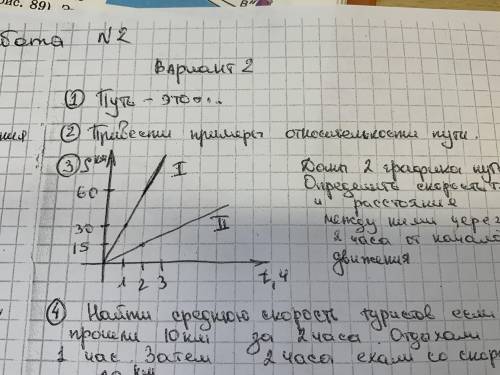 рис. 89) 2
бота N2
Вариант 2
① Путь – это...
ния ② Привести примеры относительности пути.
③ S км
I
60
30
II
15
1 2 3
t, ч
Даны 2 графика пут
Определить скорость т
и расстояние
между ними через
2 часа от начала
движения
④ Найти среднюю скорость туристов если
прошли 10 км за 2 часа. Отдыхали
1 час. Затем 2 часа ехали со скор
км